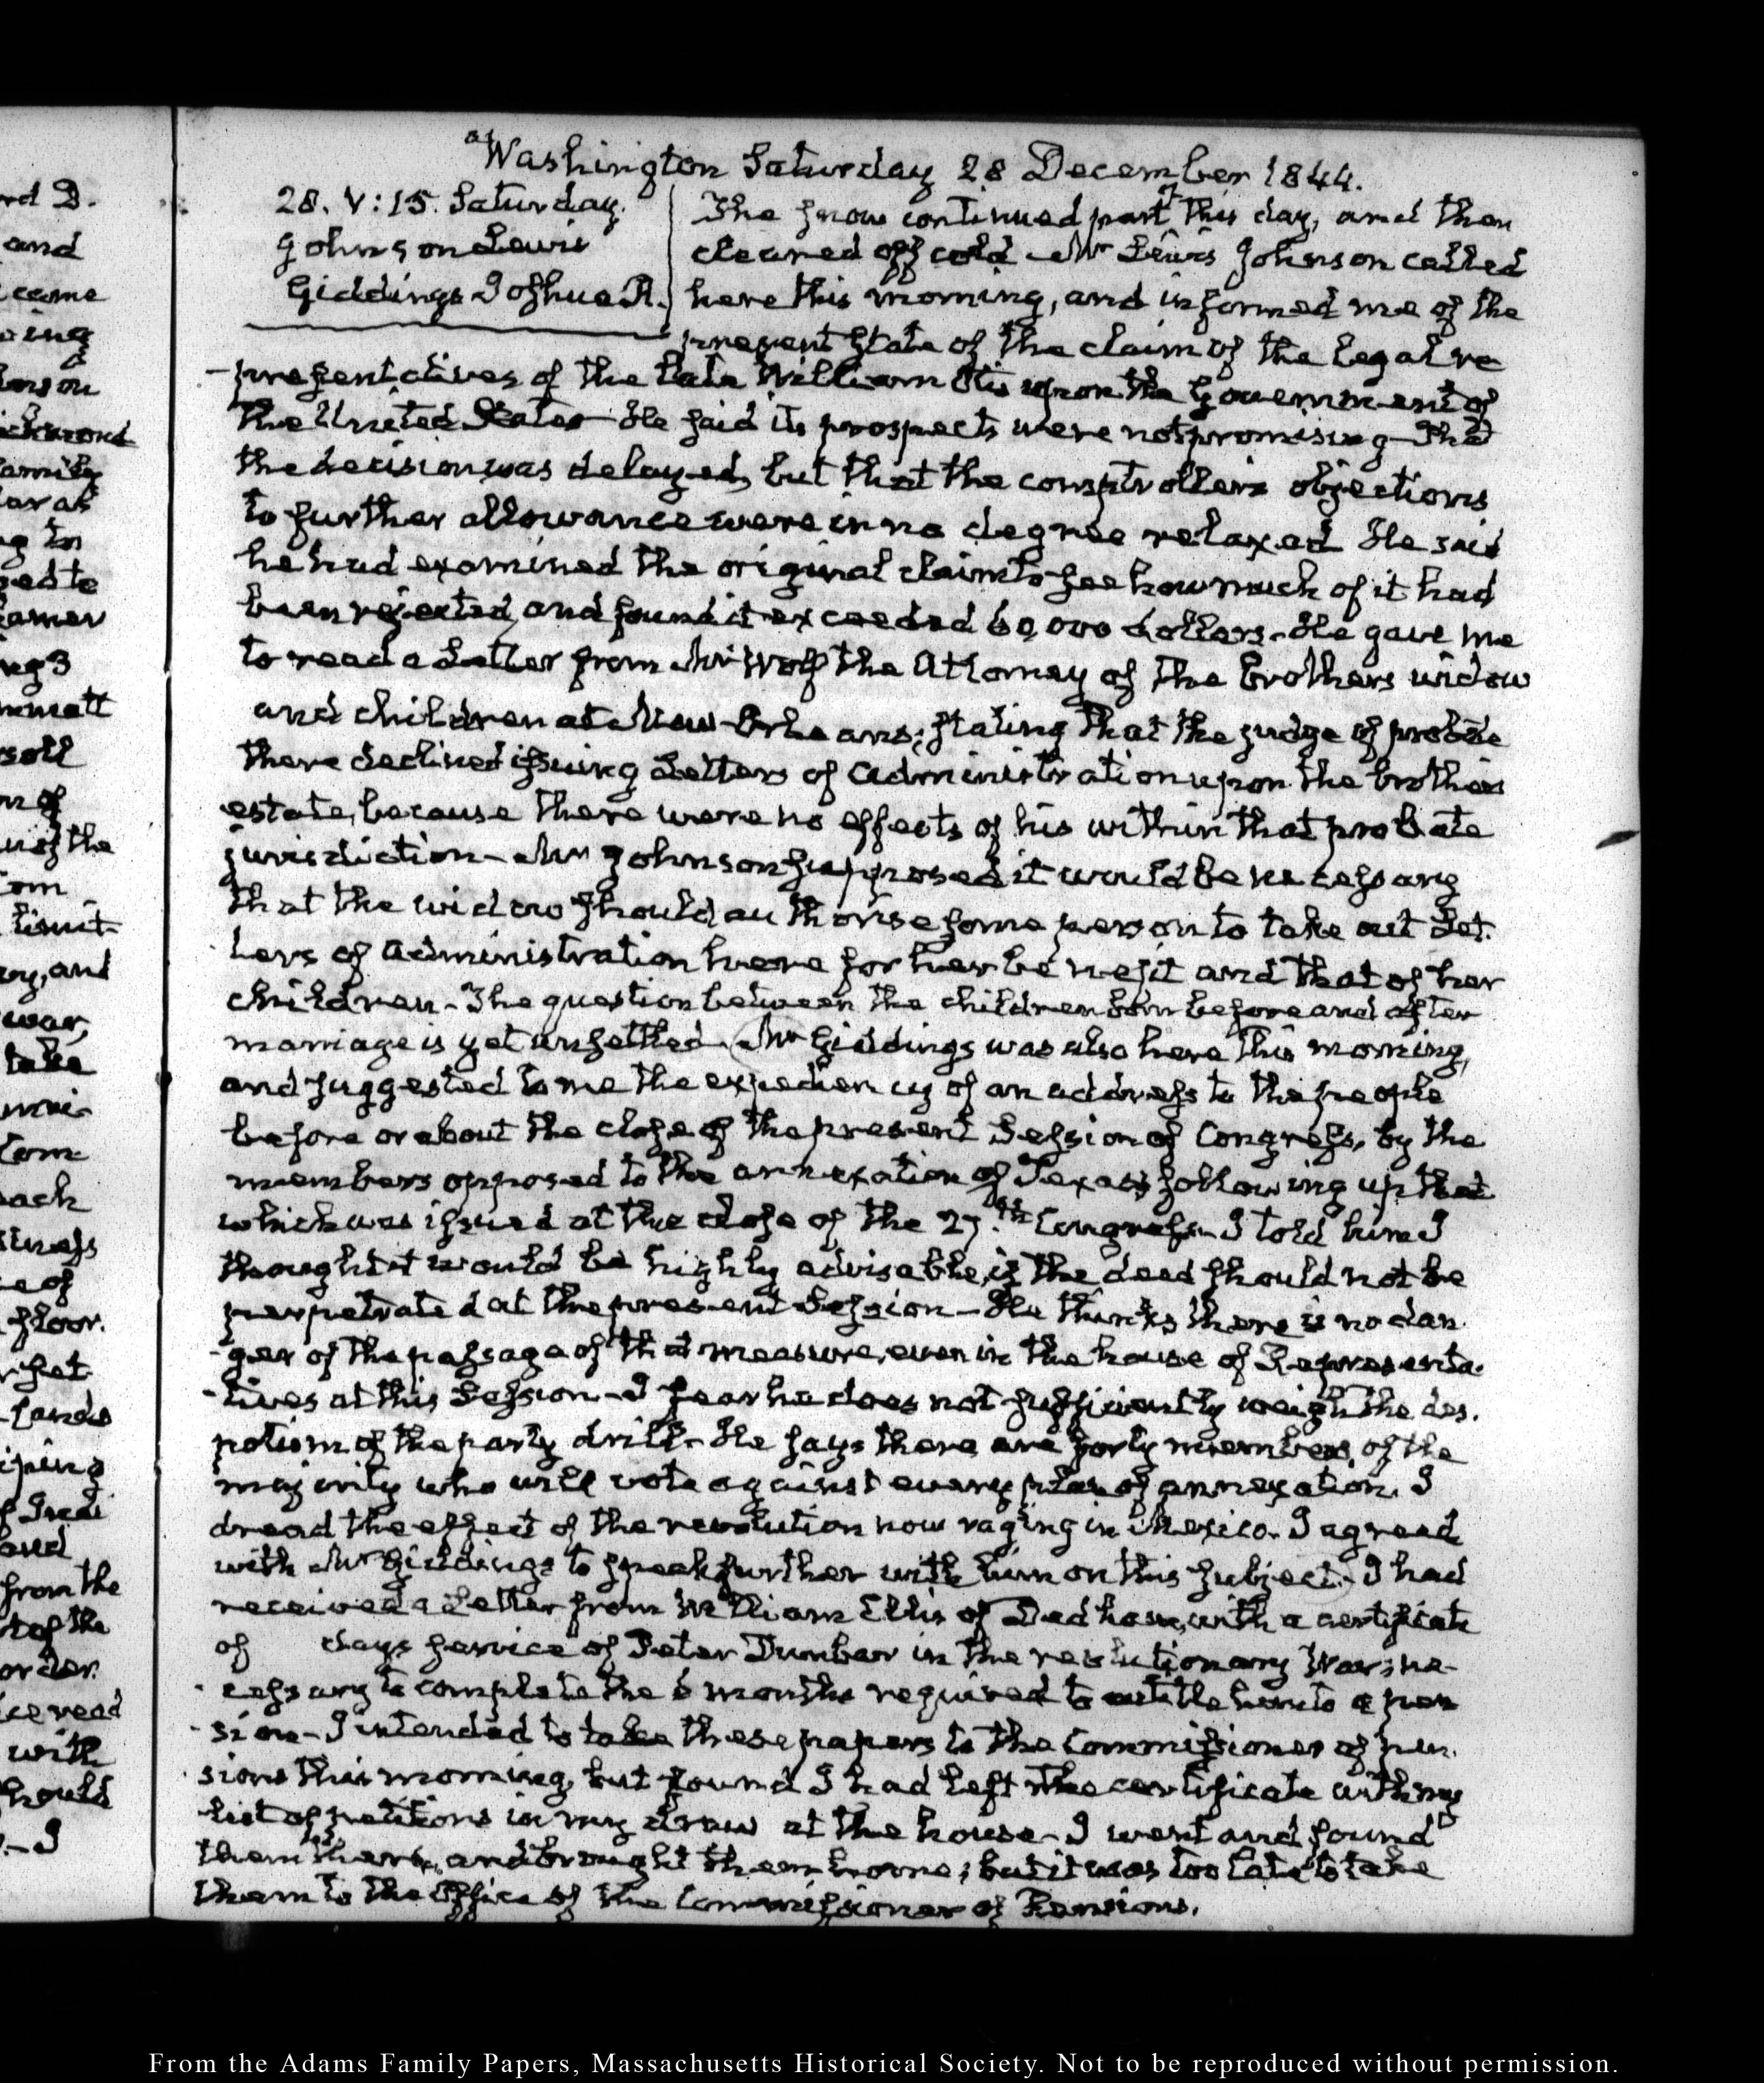 Washington Saturday 28 December 1844.
28. V:15. Saturday.
Johnson Lewis
Giddings Joshua R.
The snow continued part of this day, and then
cleared off cold. Mr Lewis Johnson called
here this morning, and informed me of the
present State of the claim of the legal re
-presentatives of the late William Otis upon the Government of
the United States. He said its prospects were not promising. That
the decision was delayed, but that the comptrollers objections
to further allowance were in no degree relaxed. He said
he had examined the original claim to see how much of it had
been rejected, and found it exceeded 60,000 dollars. He gave me
to read a Letter from Mr Wolf the Attorney of the Brothers widow
and children at New-Orleans; stating that the judge of probate
there declined issuing Letters of Administration upon the brothers
estate, because there were no effects of his within that probate
jurisdiction- Mr Johnson supposed it would be necessary
that the widow should authorise some person to take out Let.
ters of Administration here for her benefit and that of her
children- The question between the children born before and after
marriage is yet unsettled. Mr Giddings was also here this morning,
and suggested to me the expediency of an address to the people
before or about the close of the present Session of Congress, by the
members opposed to the annexation of Texas, following up that
which was issued at the close of the 27.th Congress- I told him I
thought it would be highly advisable, if the deed should not be
perpetrated at the present Session- He thinks there is no dan.
-ger of the passage of that measure, even in the house of Representa.
-tives at this Session- I fear he does not sufficiently weigh the des.
potism of the party drill- He says there are forty members, of the
majority who will vote against every plan of annexation. I
dread the effect of the revolution now raging in Mexico. I agreed
with Mr Giddings to speak further with him on this subject- I had
received a Letter from William Ellis of Dedham, with a certificate
of days service of Peter Dunbar in the revolutionary War; ne-
cessary to complete the 6 months required to entitle him to a pen
-sion- I intended to take these papers to the Commissioner of pen.
sions this morning, but found I had left the certificate with my
list of petitions in my draw at the house- I went and found
them there, and brought them home; but it was too late to take
them to the Office of the Commissioner of Pensions.
From the Adams Family Papers, Massachusetts Historical Society. Not to be reproduced without permission.